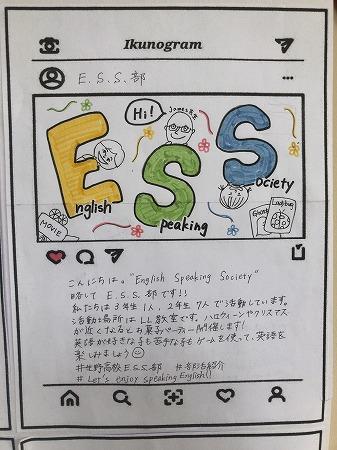 Ikunogram
E.S.S.部
Hi!
James先生
ESS
nglish
peaking
ociety
MOVIE
Ghost
Ladybug
こんにちは。"English Speaking Society"
略して E.S.S.部です!!
私たちは3年生1人、2年生7人で活動しています。
活動場所はLL教室です。ハロウィーンやクリスマス
が近くなるとお菓子パーティー開催します!
英語が好きな子も苦手な子もゲームを使って、英語を
楽しみましょう
#生野高校E.S.S.部 #部活紹介
# Let's enjoy speaking English!!